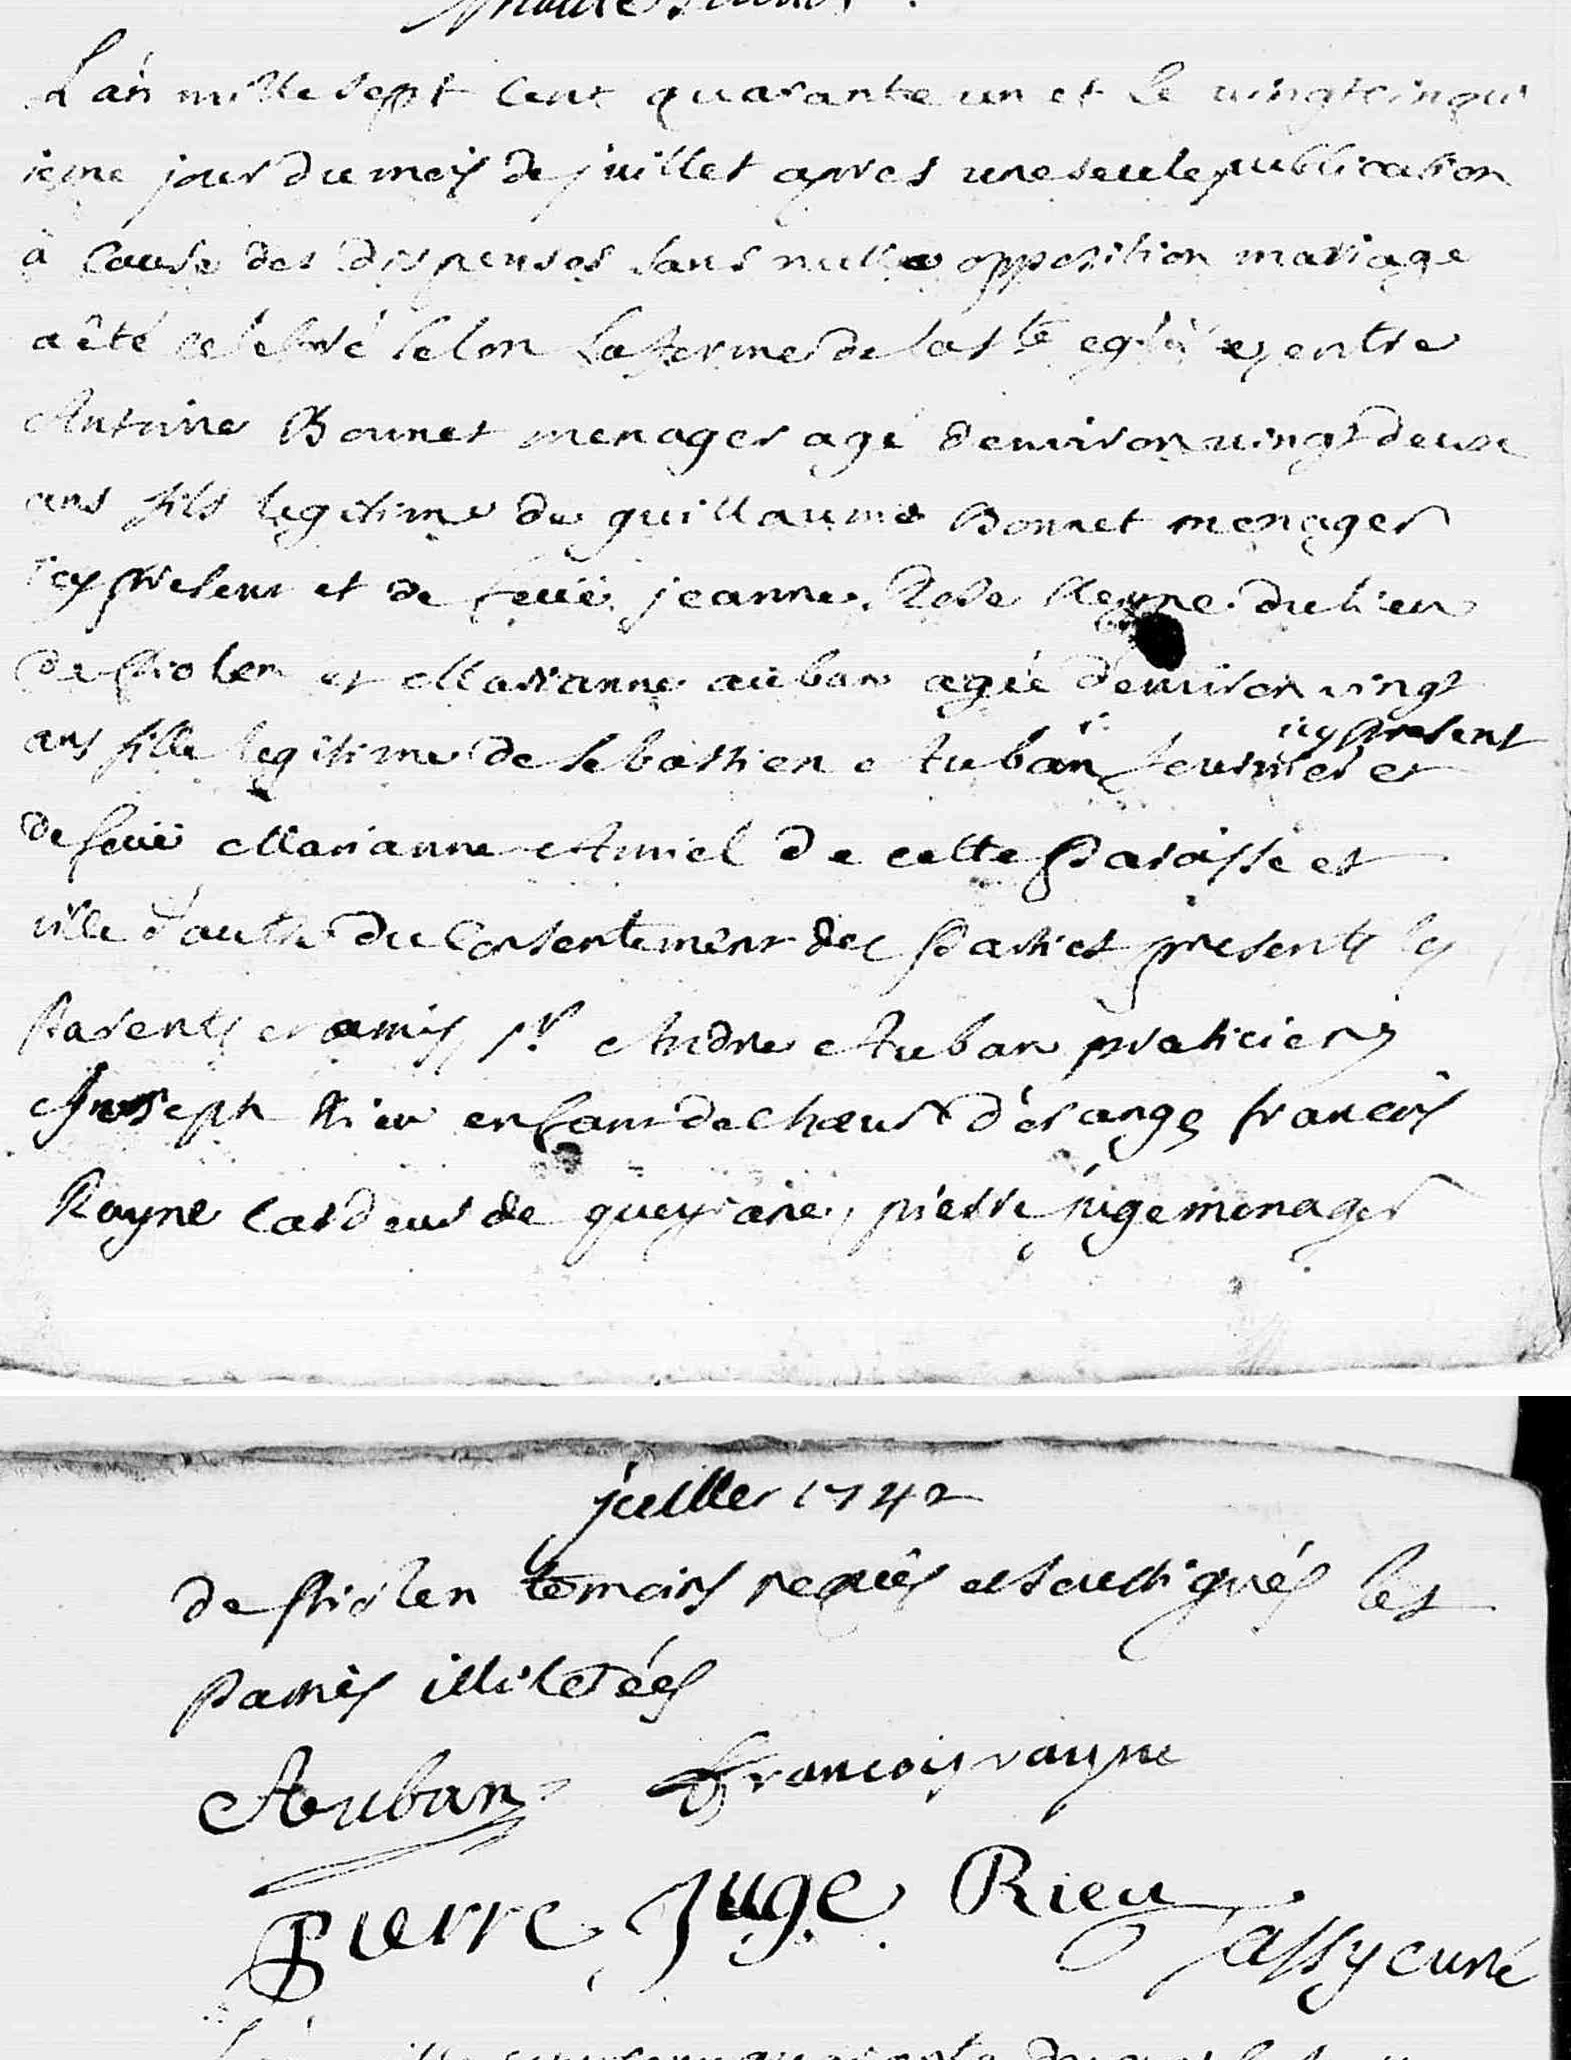 L'an mille sept cent quarante un et le vingtcinqui
ieme jour du mois de juillet apres une seule publication
à cause des dispenses sans nulle opposition mariage
a êté célébré selon la forme de la ste eglise entre
Antoine Bonnet menager agé denviron vingt deux
ans fils legitime de guillaume Bonnet menager
icy present et de feüe jeanne Rose Reyne du lieu
de Piolen et Marianne auban agée d'environ vingt
icy present
ans fille legitime de Sebastien Auban et
de feüe Marianne Amiel de cette Paroisse et
ville d'autre du consentement des Parties presents les
Parents et amis, sr. Andre Auban praticien
Joseph Rieu enfant de choeur d'orange francois
Rayne cardeur de queyrane, pierre juge menager
juillet 1742
de Piolen temoins requis et soussignés les
Parties illiterées
Auban francois rayne
Pierre Juge Rieu
assy curé